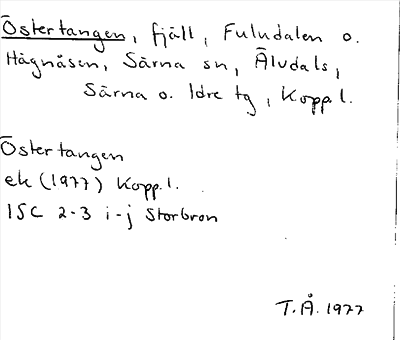 Östertangen, fjäll, Fuludalen o.
Hägnåsen, Särna sn, Älvdals,
Särna o. Idre tg, Kopp.l.
Östertangen
ek (1977) Kopp.l.
15C 2-3 i-j Storbron
T.Å. 1977